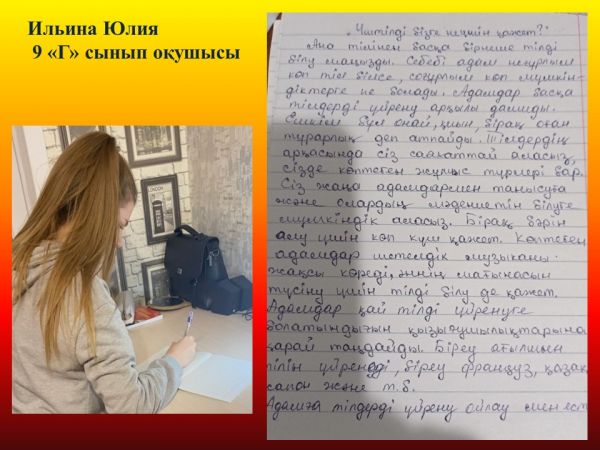 Ильина Юлия
9 «Г» сынып оқушысы
„Үштілді бізге не үшін қажет?"
Ана тілінен басқа бірнеше тілді
білу маңызды. Себебі адам неғұрлым
көп тіл білсе, соғұрлым көп мүмкін-
діктерге ие болады. Адамдар басқа
тілдерді үйрену арқылы дамиды.
Ешкім бұл оңай, қиын, бірақ оған
тұрарлық деп айтпайды. Тілдердің
арқасында сіз саяхаттай аласыз,
сізде көптеген жұмыс түрлері бар.
Сіз жаңа адамдармен танысуға
және олардың мәдениетін білуге
мүмкіндік аласыз. Бірақ бәрін
алу үшін көп күш қажет. Көптеген
адамдар шетелдік музыканы
жақсы көреді, әннің мағынасын
түсіну үшін тілді білу де қажет.
Адамдар қай тілді үйренуге
болатындығын қызығушылықтарына
қарай таңдайды. Біреу ағылшын
тілін үйренеді, біреу француз, қазақ
сапон және т.б.
Адамға тілдерді үйрену ойлау мен ест
LONDON